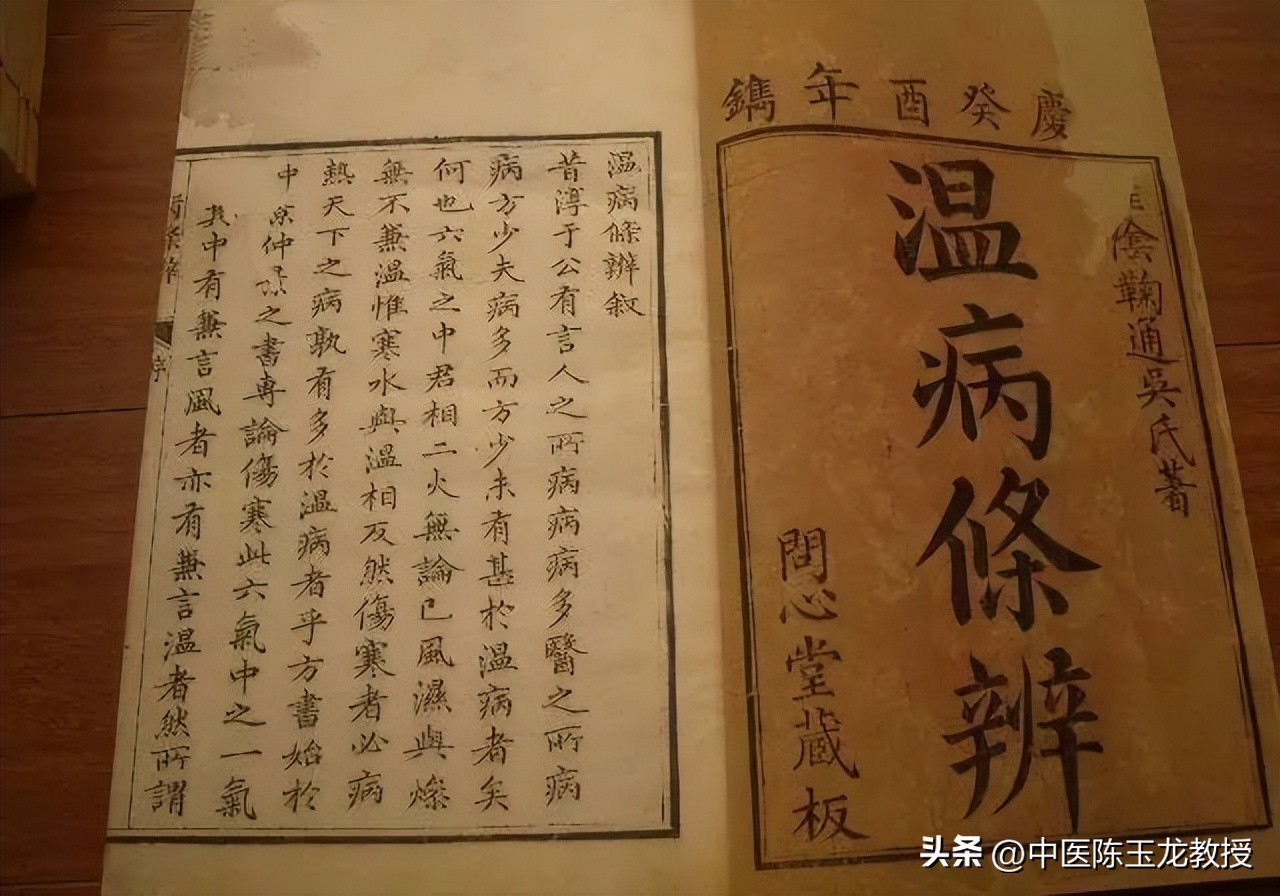 慶癸酉年鐫
陰鞠通吳氏著
温病條辨
問心堂藏板
温病條辨叙
昔淳于公有言人之所病病病多醫之所病
病方少夫病多而方少未有甚於温病者矣
何也六氣之中君相二火無論已風濕與燥
無不兼温惟寒水與温相反然傷寒者必病
熱天下之病孰有多於温病者乎方書始於
仲之書專論傷寒此六氣中之一氣
其中有兼言風者亦有兼言温者然所謂
序
头条 @中医陈玉龙教授